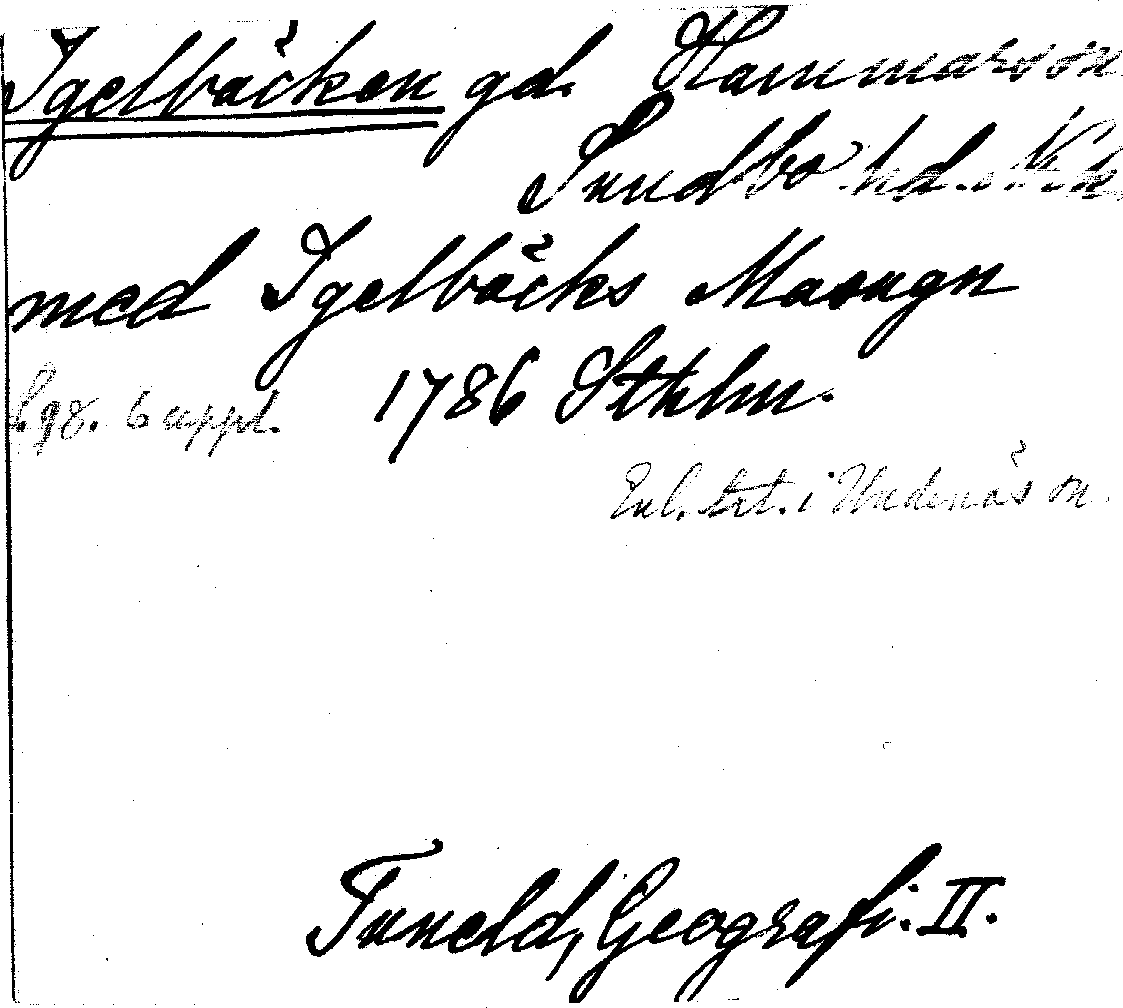 Igelbäcken gd. Hammars sn
Sundbo hd.
med Igelbäcks Masugn
s. 98. 6 uppl. 1786 Sthlm.
Enl. art. i Undenäs sn.
Tuneld, Geografi. II.